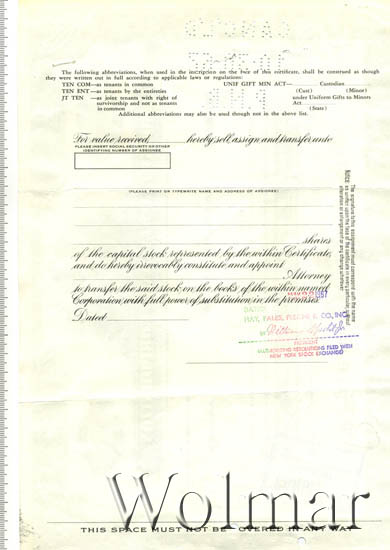 The following abbreviations, when used in the inscription on the face of this certificate, shall be construed as though
they were written out in full according to applicable laws or regulations:
TEN COM—as tenants in common UNIF GIFT MIN ACT— Custodian
TEN ENT—as tenants by the entireties (Cust) (Minor)
JT TEN —as joint tenants with right of under Uniform Gifts to Minors
survivorship and not as tenants Act
in common (State)
Additional abbreviations may also be used though not in the above list.
For value received, hereby sell, assign and transfer unto
PLEASE INSERT SOCIAL SECURITY OR OTHER
IDENTIFYING NUMBER OF ASSIGNEE
(PLEASE PRINT OR TYPEWRITE NAME AND ADDRESS OF ASSIGNEE)
shares
of the capital stock represented by the within Certificate,
and do hereby irrevocably constitute and appoint
Attorney
to transfer the said stock on the books of the within named
Corporation with full power of substitution in the premises
Dated
Notice: The signature to this assignment must correspond with the name
as written upon the face of the certificate in every particular, without
alteration or enlargement or any change whatever.
HAY, FALES, & CO., INC.
BY
PRESIDENT
AUTHORIZING RESOLUTIONS FILED WITH
NEW YORK STOCK EXCHANGE
Wolmar
THIS SPACE MUST NOT BE OVERED IN ANY WAY